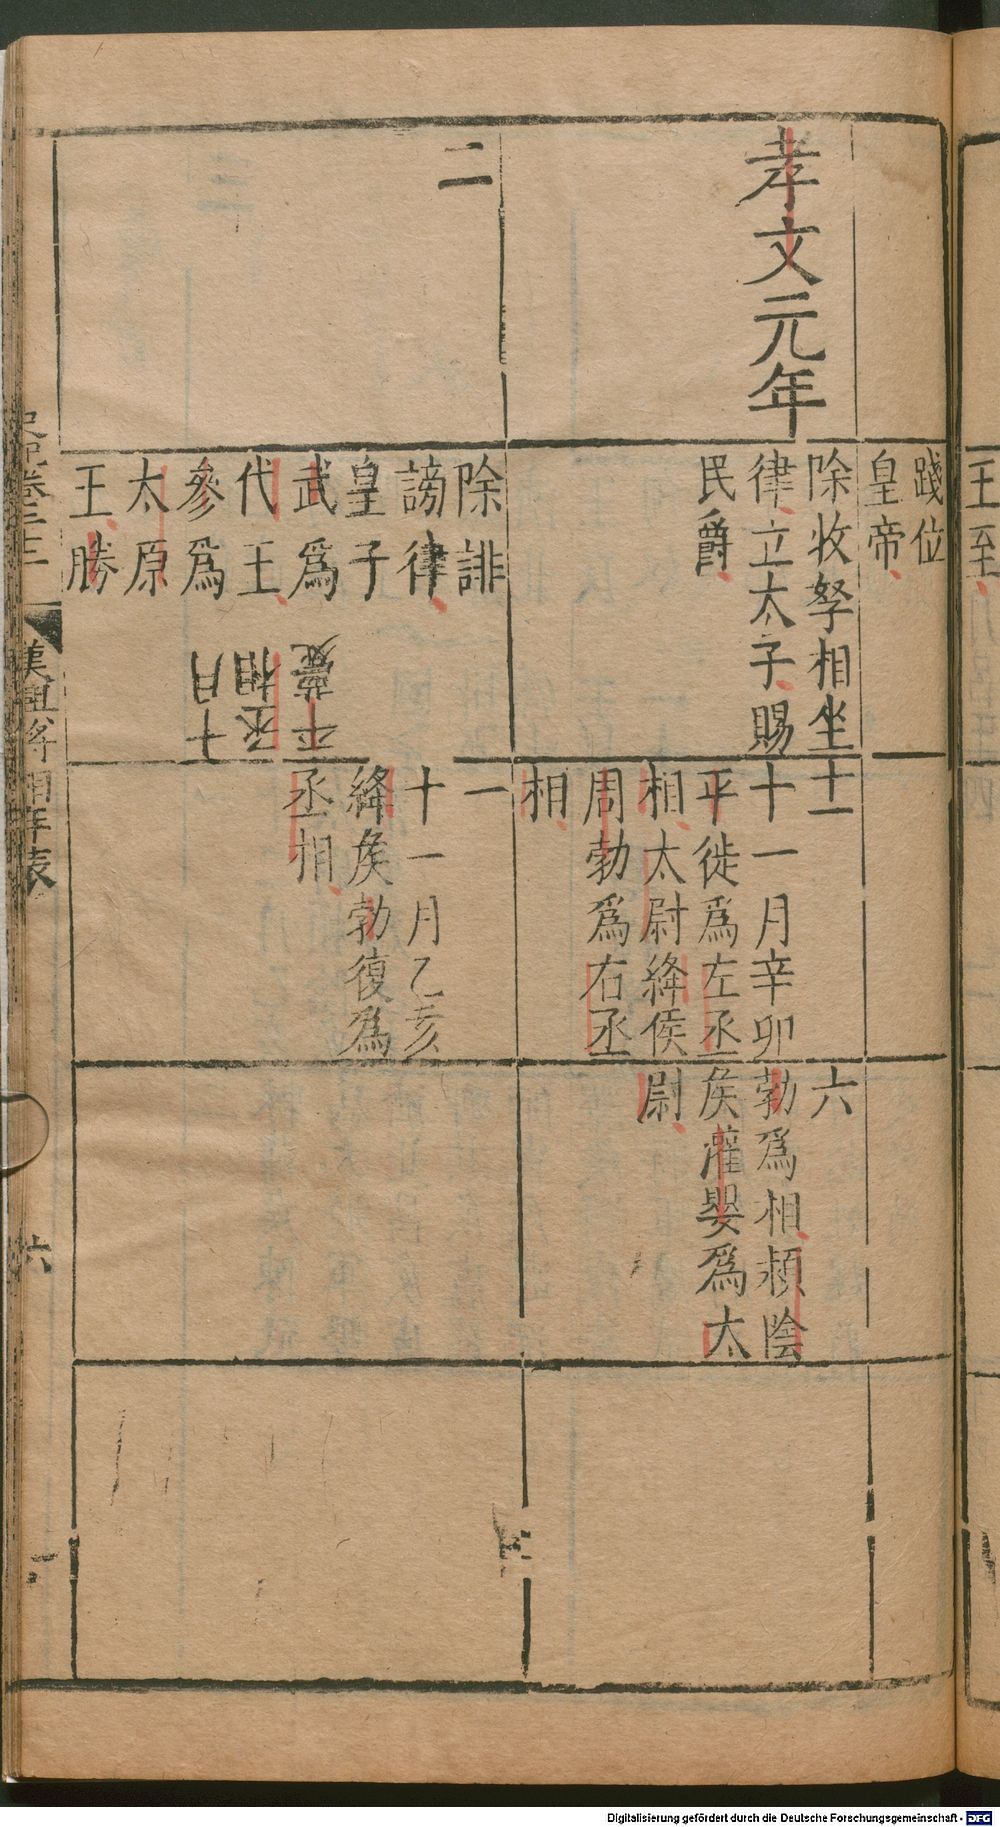 踐位
皇帝
孝文元年
除收孥相坐
律立太子賜
民爵
十一
十一月辛卯
平徙爲左丞
相太尉絳侯
周勃爲右丞
相
六
勃爲相潁陰
矦灌嬰爲太
尉
二
除誹
謗律
皇子
武爲
代王
參爲
太原
王勝
十月
丞相
平薨
一
十一月乙亥
絳矦勃復爲
丞相
漢興將相年表
六
王至
Digitalisierung gefördert durch die Deutsche Forschungsgemeinschaft - DFG